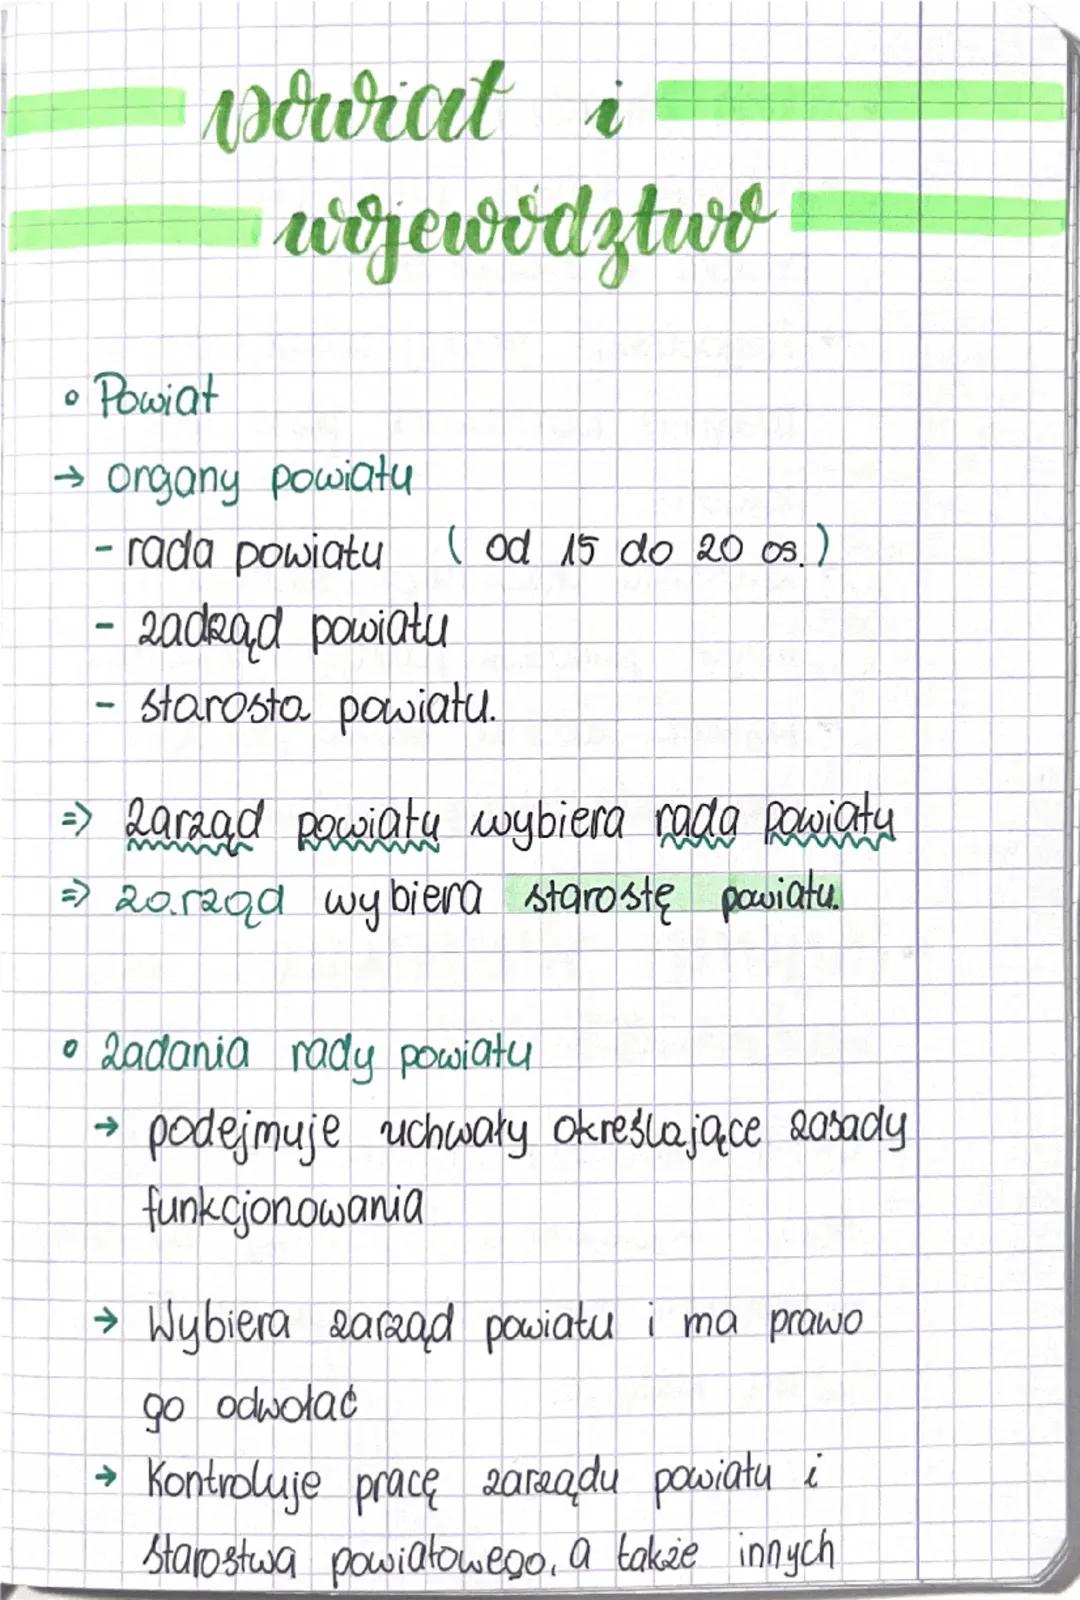 powiat i
województwo
• Powiat
→ organy powiatu
- rada powiatu ( od 15 do 20 os.)
- zadrząd powiatu
- starosta powiatu.
⇒ zarząd powiatu wybiera rada powiatu
⇒ zarząd wybiera starostę powiatu.
• zadania rady powiatu
→ podejmuje uchwały określające zasady
funkcjonowania
→ Wybiera zarząd powiatu i ma prawo
go odwołać
→ Kontroluje pracę zarządu powiatu i
starostwa powiatowego, a także innych